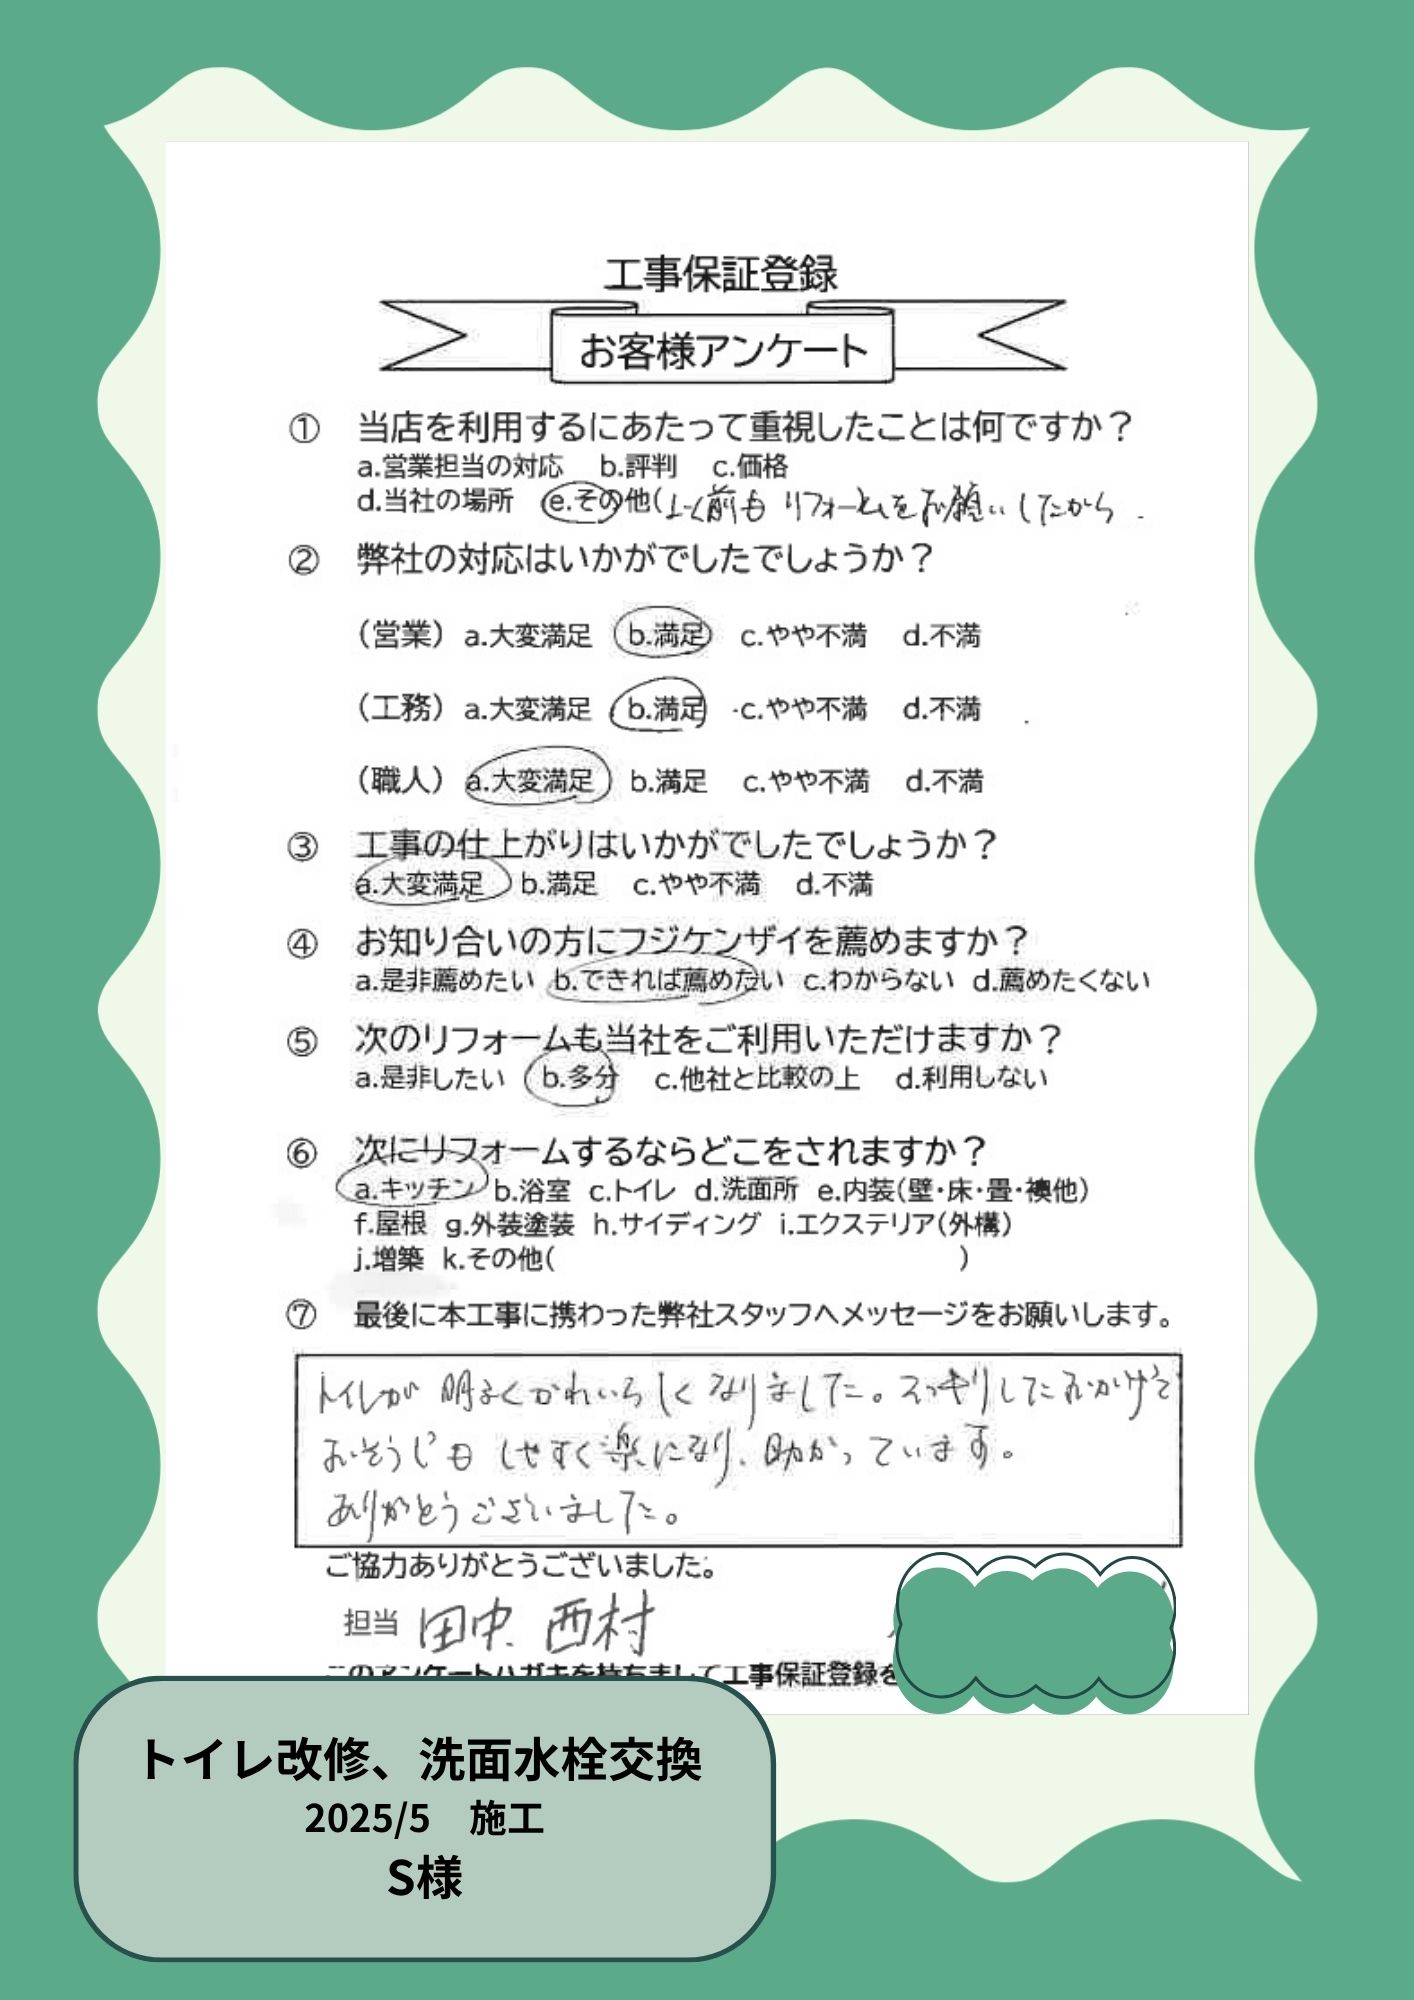 工事保証登録
お客様アンケート
① 当店を利用するにあたって重視したことは何ですか？
a.営業担当の対応 b.評判 c.価格
d.当社の場所 e.その他( 以前も リフォームをお願いしたから
② 弊社の対応はいかがでしたでしょうか？
（営業） a.大変満足 b.満足 c.やや不満 d.不満
（工務） a.大変満足 b.満足 c.やや不満 d.不満
（職人） a.大変満足 b.満足 c.やや不満 d.不満
③ 工事の仕上がりはいかがでしたでしょうか？
a.大変満足 b.満足 c.やや不満 d.不満
④ お知り合いの方にフジケンザイを薦めますか？
a.是非薦めたい b.できれば薦めたい c.わからない d.薦めたくない
⑤ 次のリフォームも当社をご利用いただけますか？
a.是非したい b.多分 c.他社と比較の上 d.利用しない
⑥ 次にリフォームするならどこをされますか？
a.キッチン b.浴室 c.トイレ d.洗面所 e.内装(壁・床・畳・襖他)
f.屋根 g.外装塗装 h.サイディング i.エクステリア(外構)
j.増築 k.その他( )
⑦ 最後に本工事に携わった弊社スタッフへメッセージをお願いします。
トイレが 明るくかわいらしくなりました。スッキリしたおかげで
おそうじも しやすく楽になり、助かっています。
ありがとうございました。
ご協力ありがとうございました。
担当 田中 西村
このアンケートハガキを持ちまして工事保証登録を
トイレ改修、洗面水栓交換
2025/5 施工
S様